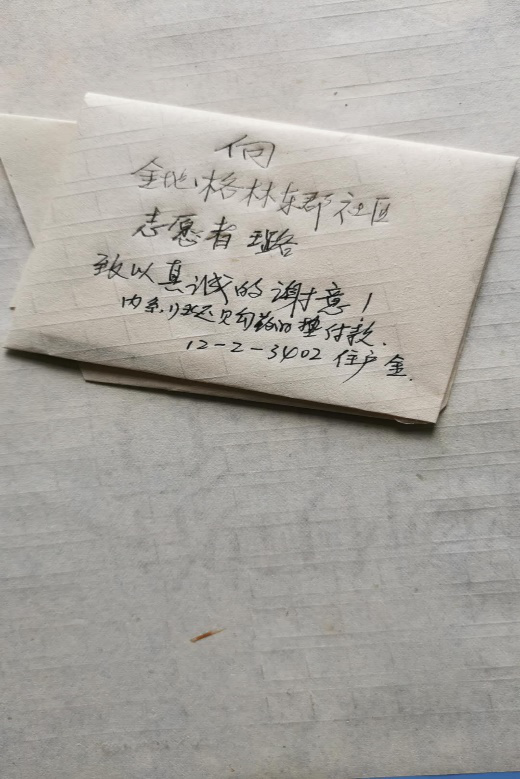 向
金地格林东郡社区
志愿者 王路
致以真诚的谢意！
内系归还购药的垫付款.
12-2-3402 住户 金.